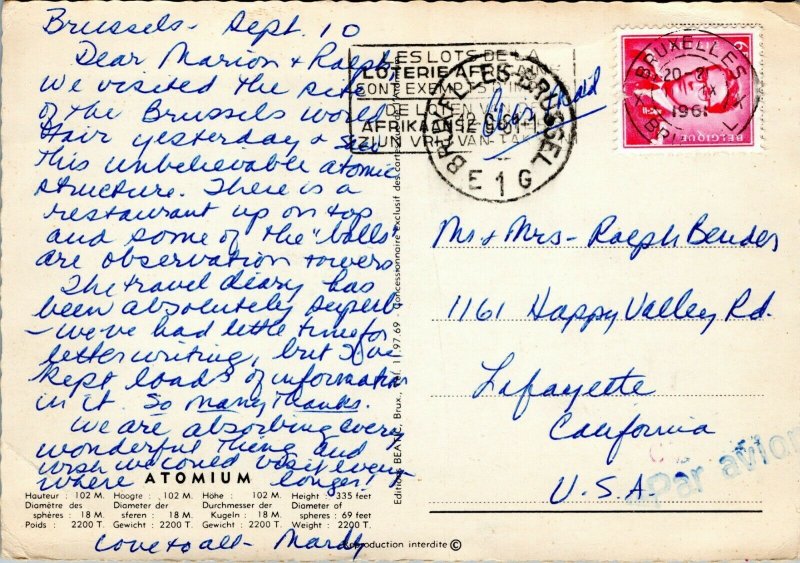 Brussels - Sept. 10
Dear Marion & Ralph
We visited the site
of the Brussels World
Fair yesterday & saw
this unbelievable atomic
structure. There is a
restaurant up on top
and some of the "balls"
are observation towers
The travel diary has
been absolutely superb
- we've had little time for
letter writing, but I've
kept loads of information
in it. So many thanks.
We are absorbing every
wonderful thing and
wish we could visit every
where longer!
Love to all - Mardy
ATOMIUM
Hauteur : 102 M. Hoogte : 102 M. Höhe : 102 M. Height : 335 feet
Diamètre des Diameter der Durchmesser der Diameter of
sphères : 18 M. sferen : 18 M. Kugeln : 18 M. spheres : 69 feet
Poids : 2200 T. Gewicht : 2200 T. Gewicht : 2200 T. Weight : 2200 T.
Reproduction interdite ©
Concessionnaire exclusif des cartes
11.97.69
LES LOTS DE LA
LOTERIE AFRICAINE
SONT EXEMPTS D'IM
DE LOTEN VAN DE
AFRIKAANSE
ZIJN VRIJ VAN TAKS
BRUXELLES-BRUSSEL
E 1 G
BRUXELLES
20-
IX
1961
BELGIQUE
Mr & Mrs - Ralph Bender
1161 Happy Valley Rd.
Lafayette
California
U.S.A.
Par avion